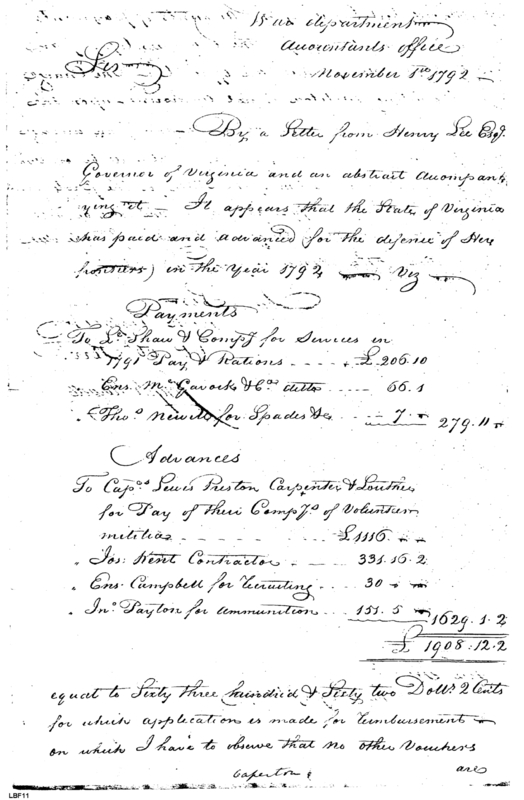 War department
Accountants office
Sir
November 1st 1792
By a Letter from Henry Lee Esqr.
Governor of Virginia and an abstract accompan-
ying it - It appears that the State of Virginia
has paid and advanced for the defense of Her
frontiers in the Year 1792 Viz
Payments
To Lt. Shaw & Compy for Services in
1791 Pay & Rations £ 206.10
Ens. McGavock & Co. ditto 66.1
" Thos. Newell for Spades &c 7. " 279.11 "
Advances
To Capts. Lewis Preston Carpenter & Lowther
for Pay of their Compys. of Volunteer
militia £1116. " "
" Jos. Kent Contractor 331.16.2
" Ens. Campbell for recruiting 30 " "
" Jno. Payton for ammunition 151.5 " 1629.1.2
£ 1908.12.2
equal to Sixty three hundred & Sixty two Dolls. 2 Cents
for which application is made for reimbursement
on which I have to observe that no other Vouchers
Caperton &
are
LBF11